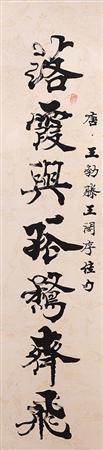 落霞與孤鶩齊飛
唐·王勃滕王閣序佳句